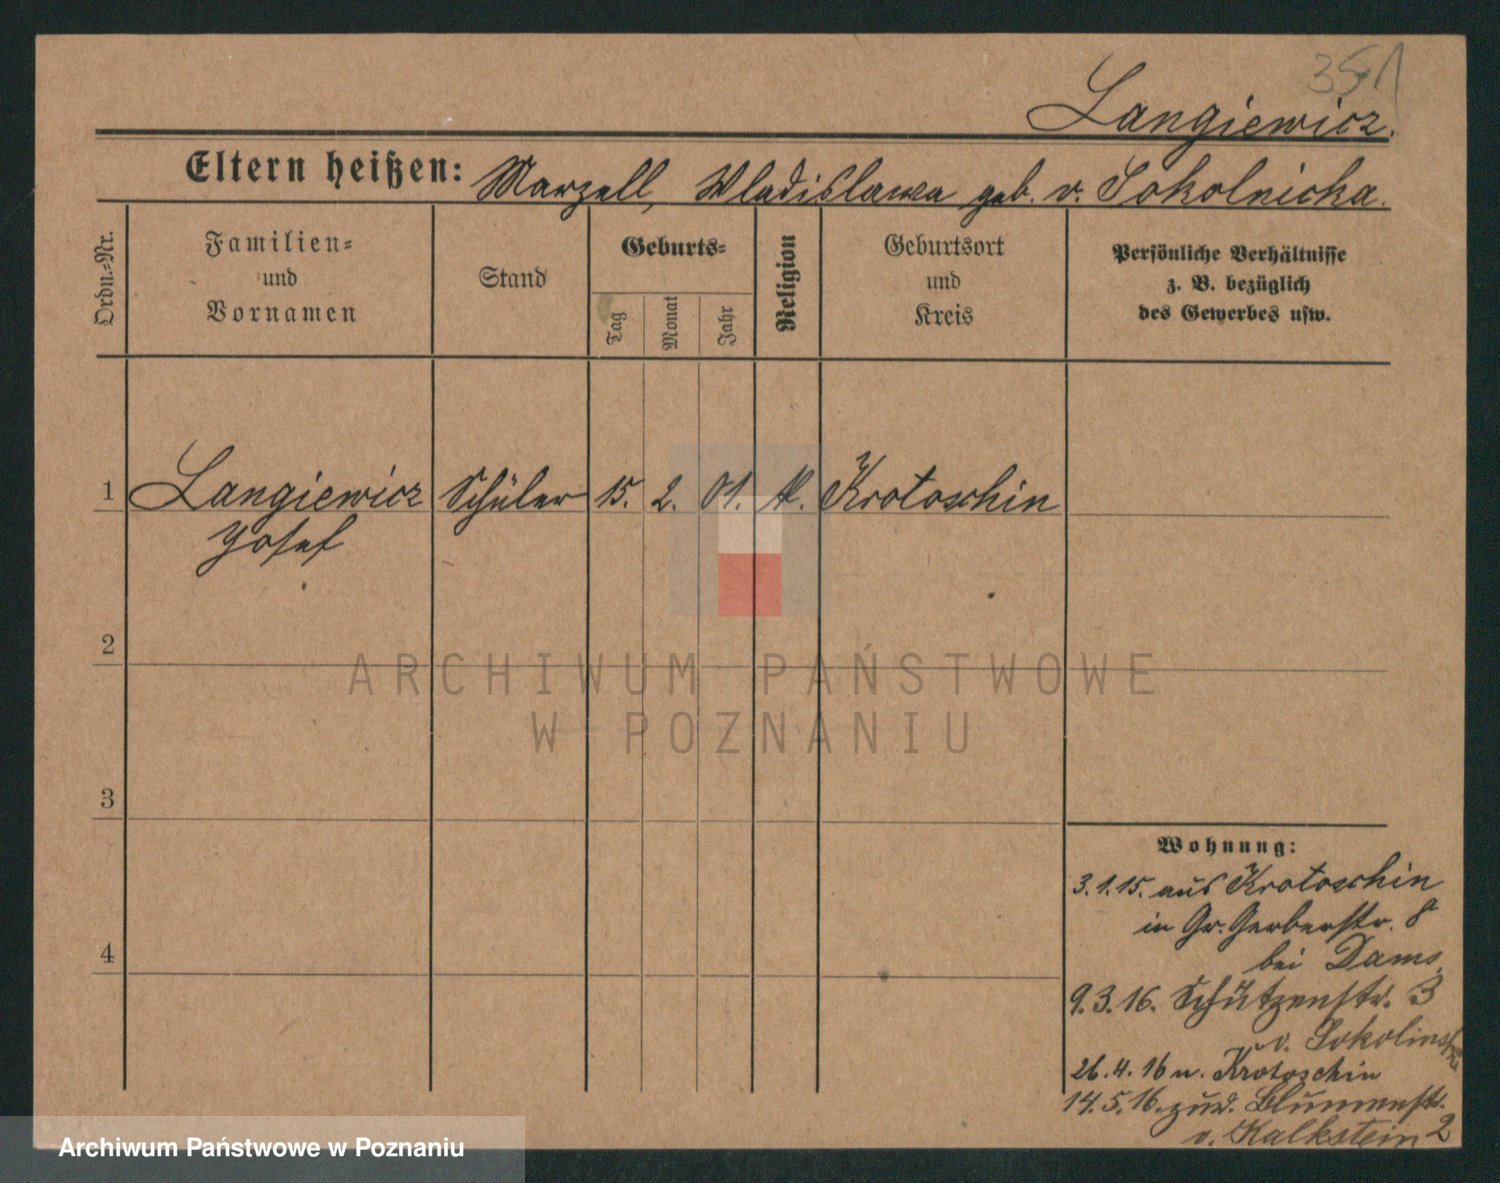 351
Langiewicz.
Eltern heißen: Marzell, Wladislawa geb. v. Sokolnicka.
Ordn.=Nr.
Familien=
und
Vornamen
Stand
Geburts=
Tag
Monat
Jahr
Religion
Geburtsort
und
Kreis
Persönliche Verhältnisse
z. B. bezüglich
des Gewerbes usw.
1 Langiewicz Schüler 15. 2. 01. k. Krotoschin
Josef
2
3
4
ARCHIWUM PAŃSTWOWE
W POZNANIU
Wohnung:
3.1.15. aus Krotoschin
in Gr. Gerberstr. 8
bei Dams.
9.3.16. Schützenstr. 3
v.
26.4.16 n. Krotoschin
14.5.16. zur. Blumenstr.
v. Kalkstein 2
Archiwum Państwowe w Poznaniu